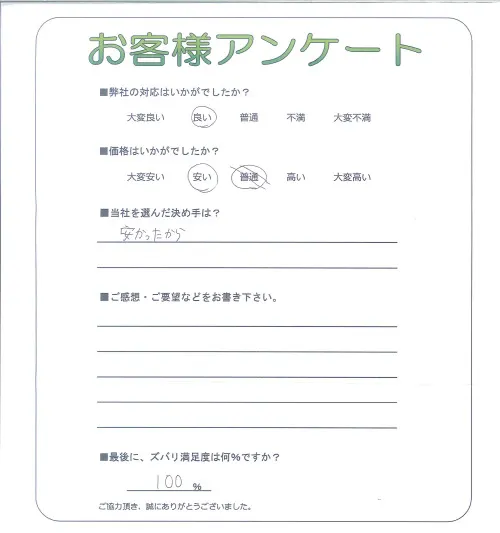 お客様アンケート
■弊社の対応はいかがでしたか？
大変良い 良い 普通 不満 大変不満
■価格はいかがでしたか？
大変安い 安い 普通 高い 大変高い
■当社を選んだ決め手は？
安かったから
■ご感想・ご要望などをお書き下さい。
■最後に、ズバリ満足度は何%ですか？
100 %
ご協力頂き、誠にありがとうございました。